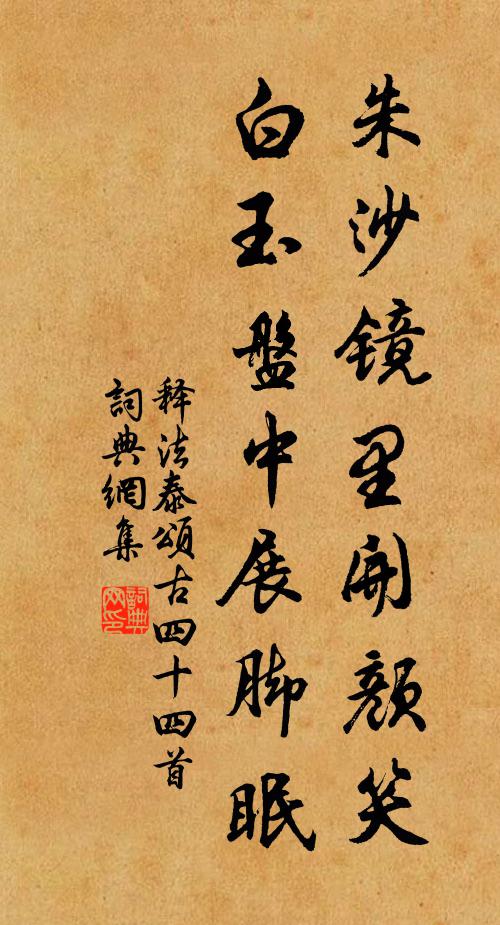 朱沙镜里開顔笑
白玉盤中展脚眠
释法泰頌古四十四首
詞典網集
詞典
网印